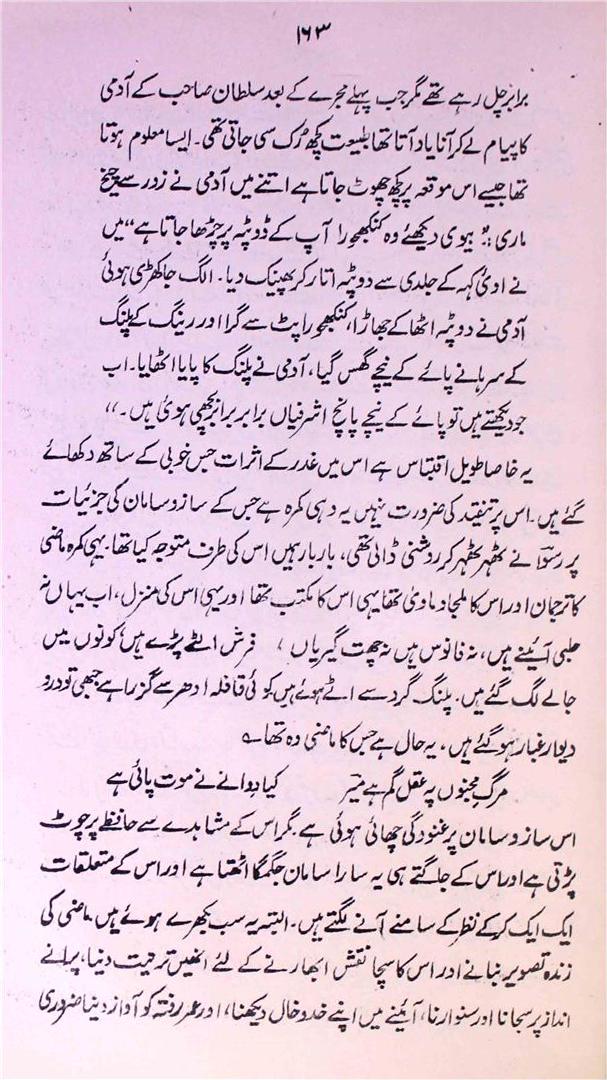 ۱۶۳
برابر چل رہے تھے مگر جب پہلے مجرے کے بعد سلطان صاحب کے آدمی
کا پیام لے کر آنا یاد آتا تھا طبیعت کچھ رک سی جاتی تھی۔ ایسا معلوم ہوتا
تھا جیسے اس موقعہ پر کچھ چھوٹ جاتا ہے اتنے میں آدمی نے زور سے چیخ
ماری: "بیوی دیکھئے وہ کنکھجورا آپ کے ڈوپٹہ پر چڑھا جاتا ہے" میں
نے اوئی کہہ کے جلدی سے دوپٹہ اتار کر پھینک دیا۔ الگ جا کھڑی ہوئی
آدمی نے دوپٹہ اٹھا کے جھاڑا، کنکھجورا پٹ سے گرا اور رینگ کے پلنگ
کے سرہانے پائے کے نیچے گھس گیا، آدمی نے پلنگ کا پایا اٹھایا۔ اب
جو دیکھتے ہیں تو پائے کے نیچے پانچ اشرفیاں برابر برابر بچھی ہوئی ہیں۔"
یہ خاصا طویل اقتباس ہے اس میں غدر کے اثرات جس خوبی کے ساتھ دکھائے
گئے ہیں۔ اس پر تنقید کی ضرورت نہیں یہ وہی کمرہ ہے جس کے ساز و سامان کی جزئیات
پر رسوا نے ٹھہر ٹھہر کر روشنی ڈالی تھی، بار بار ہمیں اس کی طرف متوجہ کیا تھا۔ یہی کمرہ ماضی
کا ترجمان اور اس کا ملجا و ماویٰ تھا یہی اس کا مکتب تھا اور یہی اس کی منزل، اب یہاں نہ
حلبی آئینے ہیں، نہ فانوس ہیں نہ چھت گیریاں، فرش الٹے پڑے ہیں، کونوں میں
جالے لگ گئے ہیں۔ پلنگ گرد سے اٹے ہوئے ہیں کوئی قافلہ ادھر سے گزرا ہے جبھی تو در و
دیوار غبار ہو گئے ہیں، یہ حال ہے جس کا ماضی وہ تھا ؎
مرگ مجنوں پہ عقل گم ہے میر کیا دوانے نے موت پائی ہے
اس ساز و سامان پر غنودگی چھائی ہوئی ہے۔ مگر اس کے مشاہدے سے حافظے پر چوٹ
پڑتی ہے اور اس کے جاگتے ہی یہ سارا سامان جگمگا اٹھتا ہے اور اس کے متعلقات
ایک ایک کر کے نظر کے سامنے آنے لگتے ہیں۔ البتہ یہ سب بکھرے ہوئے ہیں ماضی کی
زندہ تصویر بنانے اور اس کا سچا نقش ابھارنے کے لئے انھیں ترتیب دینا، پرانے
انداز پر سجانا اور سنوارنا، آئینے میں اپنے خد و خال دیکھنا، اور عمر رفتہ کو آواز دینا ضروری